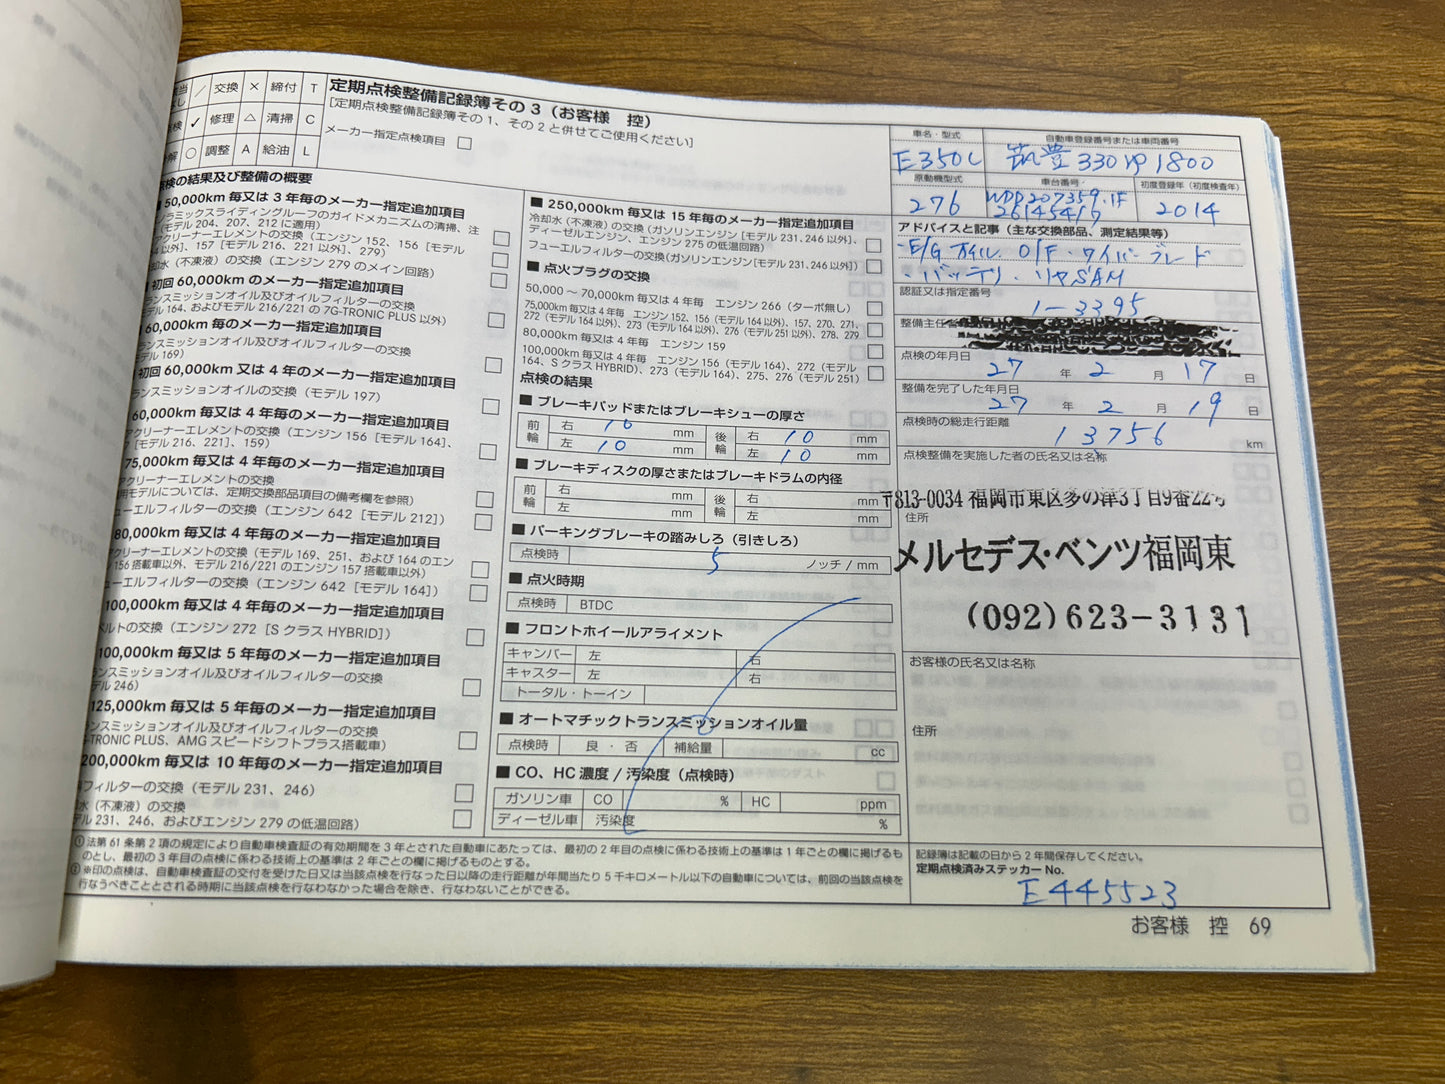 交換 × 締付 T
修理 △ 清掃 C
調整 A 給油 L
定期点検整備記録簿その３（お客様　控）
[定期点検整備記録簿その１、その２と併せてご使用ください]
メーカー指定点検項目
点検の結果及び整備の概要
50,000km 毎又は 3 年毎のメーカー指定追加項目
ラミックスライディングルーフのガイドメカニズムの清掃、注
（モデル 204、207、212 に適用）
アクリーナーエレメントの交換（エンジン 152、156［モデル
以外］、157［モデル 216、221 以外］、279）
水（不凍液）の交換（エンジン 279 のメイン回路）
初回 60,000km のメーカー指定追加項目
ンスミッションオイル及びオイルフィルターの交換
デル 164、およびモデル 216/221 の 7G-TRONIC PLUS 以外）
60,000km 毎のメーカー指定追加項目
ンスミッションオイル及びオイルフィルターの交換
デル 169）
初回 60,000km 又は 4 年毎のメーカー指定追加項目
ランスミッションオイルの交換（モデル 197）
60,000km 毎又は 4 年毎のメーカー指定追加項目
アクリーナーエレメントの交換（エンジン 156［モデル 164］、
［モデル 216、221］、159）
75,000km 毎又は 4 年毎のメーカー指定追加項目
アクリーナーエレメントの交換
用モデルについては、定期交換部品項目の備考欄を参照）
ューエルフィルターの交換（エンジン 642［モデル 212］）
80,000km 毎又は 4 年毎のメーカー指定追加項目
アクリーナーエレメントの交換（モデル 169、251、および 164 のエン
156 搭載車以外、モデル 216/221 のエンジン 157 搭載車以外）
ューエルフィルターの交換（エンジン 642［モデル 164］）
100,000km 毎又は 4 年毎のメーカー指定追加項目
ベルトの交換（エンジン 272［S クラス HYBRID］）
100,000km 毎又は 5 年毎のメーカー指定追加項目
ンスミッションオイル及びオイルフィルターの交換
デル 246）
125,000km 毎又は 5 年毎のメーカー指定追加項目
ンスミッションオイル及びオイルフィルターの交換
G-TRONIC PLUS、AMG スピードシフトプラス搭載車）
200,000km 毎又は 10 年毎のメーカー指定追加項目
フィルターの交換（モデル 231、246）
水（不凍液）の交換
デル 231、246、およびエンジン 279 の低温回路）
■ 250,000km 毎又は 15 年毎のメーカー指定追加項目
冷却水（不凍液）の交換（ガソリンエンジン［モデル 231、246 以外］、
ディーゼルエンジン、エンジン 275 の低温回路）
フューエルフィルターの交換（ガソリンエンジン［モデル 231、246 以外］）
■ 点火プラグの交換
50,000 ～ 70,000km 毎又は 4 年毎　エンジン 266（ターボ無し）
75,000km 毎又は 4 年毎　エンジン 152、156（モデル 164 以外）、157、270、271、
272（モデル 164 以外）、273（モデル 164 以外）、276（モデル 251 以外）、278、279
80,000km 毎又は 4 年毎　エンジン 159
100,000km 毎又は 4 年毎　エンジン 156（モデル 164）、272（モデル
164、S クラス HYBRID）、273（モデル 164）、275、276（モデル 251）
点検の結果
■ ブレーキパッドまたはブレーキシューの厚さ
前輪 右 10 mm 後輪 右 10 mm
左 10 mm 左 10 mm
■ ブレーキディスクの厚さまたはブレーキドラムの内径
前輪 右 mm 後輪 右 mm
左 mm 左 mm
■ パーキングブレーキの踏みしろ（引きしろ）
点検時 5 ノッチ / mm
■ 点火時期
点検時 BTDC
■ フロントホイールアライメント
キャンバー 左 右
キャスター 左 右
トータル・トーイン
■ オートマチックトランスミッションオイル量
点検時 良・否 補給量 cc
■ CO、HC 濃度 / 汚染度（点検時）
ガソリン車 CO % HC ppm
ディーゼル車 汚染度 %
車名・型式 自動車登録番号または車両番号
E350C 筑豊330 1800
原動機型式 車台番号 初度登録年（初度検査年）
276 WDD207359.1F 2014
アドバイスと記事（主な交換部品、測定結果等）
・E/G オイル O/F・ワイパーブレード
・バッテリ・リヤSAM
認証又は指定番号
1-3395
整備主任
点検の年月日
27 年 2 月 17 日
整備を完了した年月日
27 年 2 月 19 日
点検時の総走行距離
13756 km
点検整備を実施した者の氏名又は名称
〒813-0034 福岡市東区多の津3丁目9番22号
住所
メルセデス・ベンツ福岡東
(092)623-3131
お客様の氏名又は名称
住所
記録簿は記載の日から 2 年間保存してください。
定期点検済みステッカー No.
E445523
① 法第 61 条第 2 項の規定により自動車検査証の有効期間を 3 年とされた自動車にあたっては、最初の 2 年目の点検に係わる技術上の基準は 1 年ごとの欄に掲げるも
のとし、最初の 3 年目の点検に係わる技術上の基準は 2 年ごとの欄に掲げるものとする。
② ※印の点検は、自動車検査証の交付を受けた日又は当該点検を行なった日以降の走行距離が年間当たり 5 千キロメートル以下の自動車については、前回の当該点検を
行なうべきこととされる時期に当該点検を行なわなかった場合を除き、行なわないことができる。
お客様　控　69